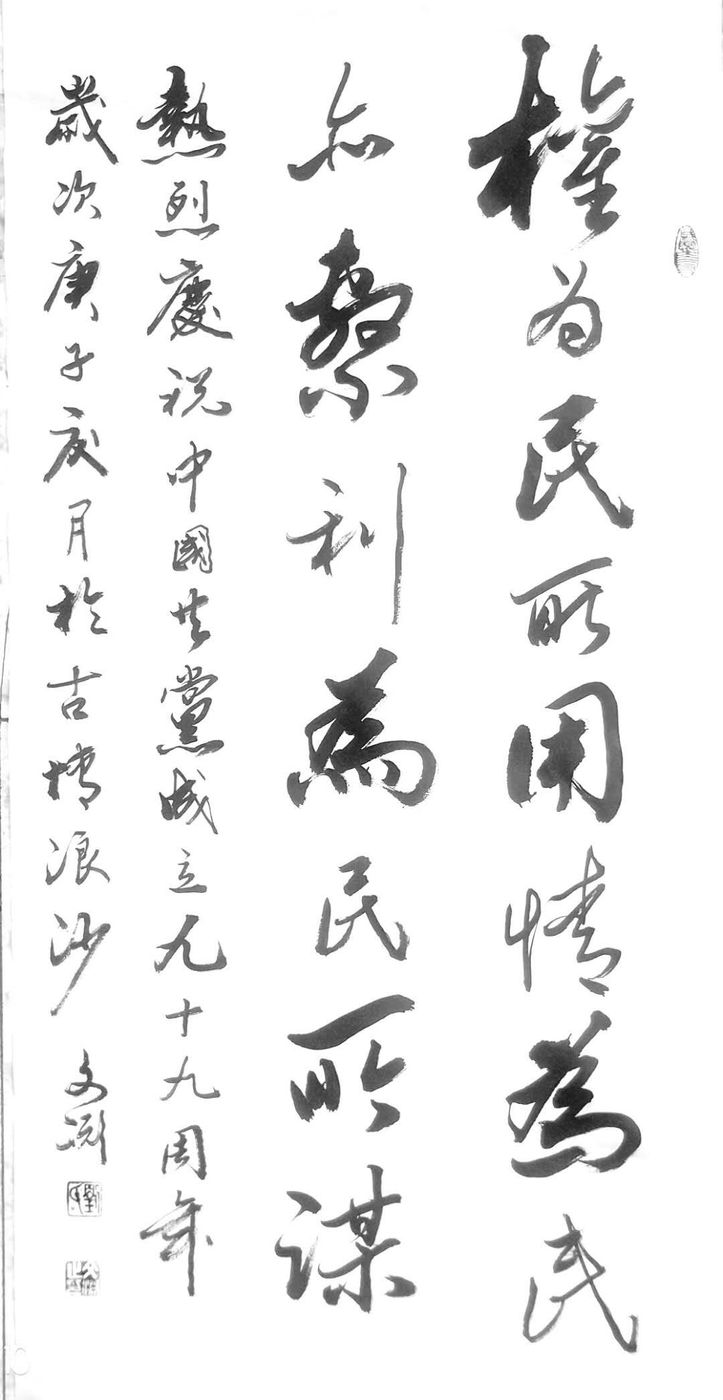 權为民所用情為民
所繫利為民所谋
熱烈慶祝中國共黨成立九十九周年
歲次庚子夏月於古博浪沙 文